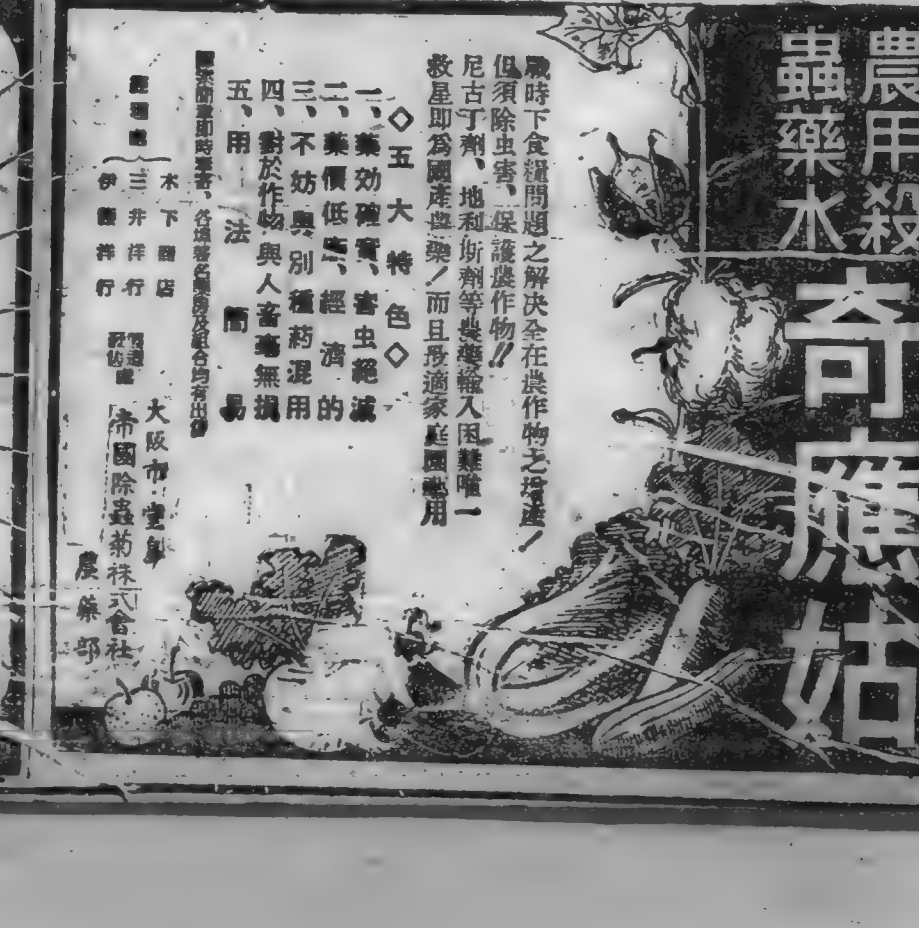 農用殺
蟲藥水
奇應姑
戰時下食糧問題之解決全在農作物之增產！
但須除虫害、保護農作物!!
尼古丁劑、地利斯劑等農藥輸入困難唯一
救星即為國產農藥！而且最適家庭園藝用
◇五大特色◇
一、藥効確實、害虫絕滅
二、藥價低廉、經濟的
三、不妨與別種葯混用
四、對於作物與人畜毫無損
五、用法簡易
即時、各埠著名藥房及組合均有出售
經理處
木下商店
三井洋行
伊藤洋行
製造處
大阪市堂島
帝國除蟲菊株式會社
農藥部